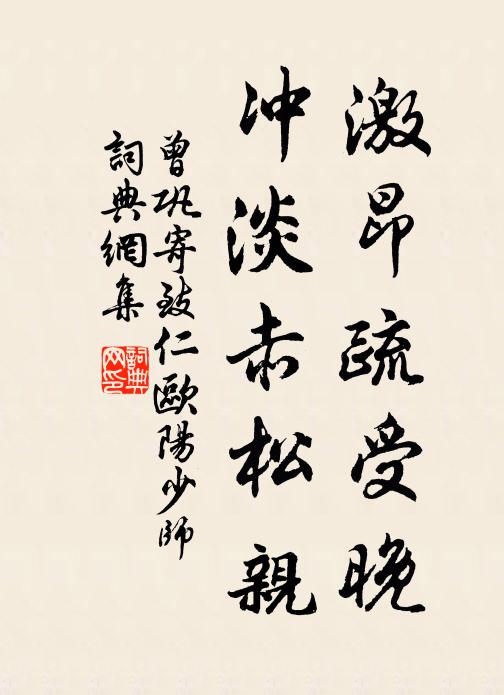 激昂疏受晚
冲淡赤松親
曾巩寄致仁歐陽少師
詞典網集
詞典网印